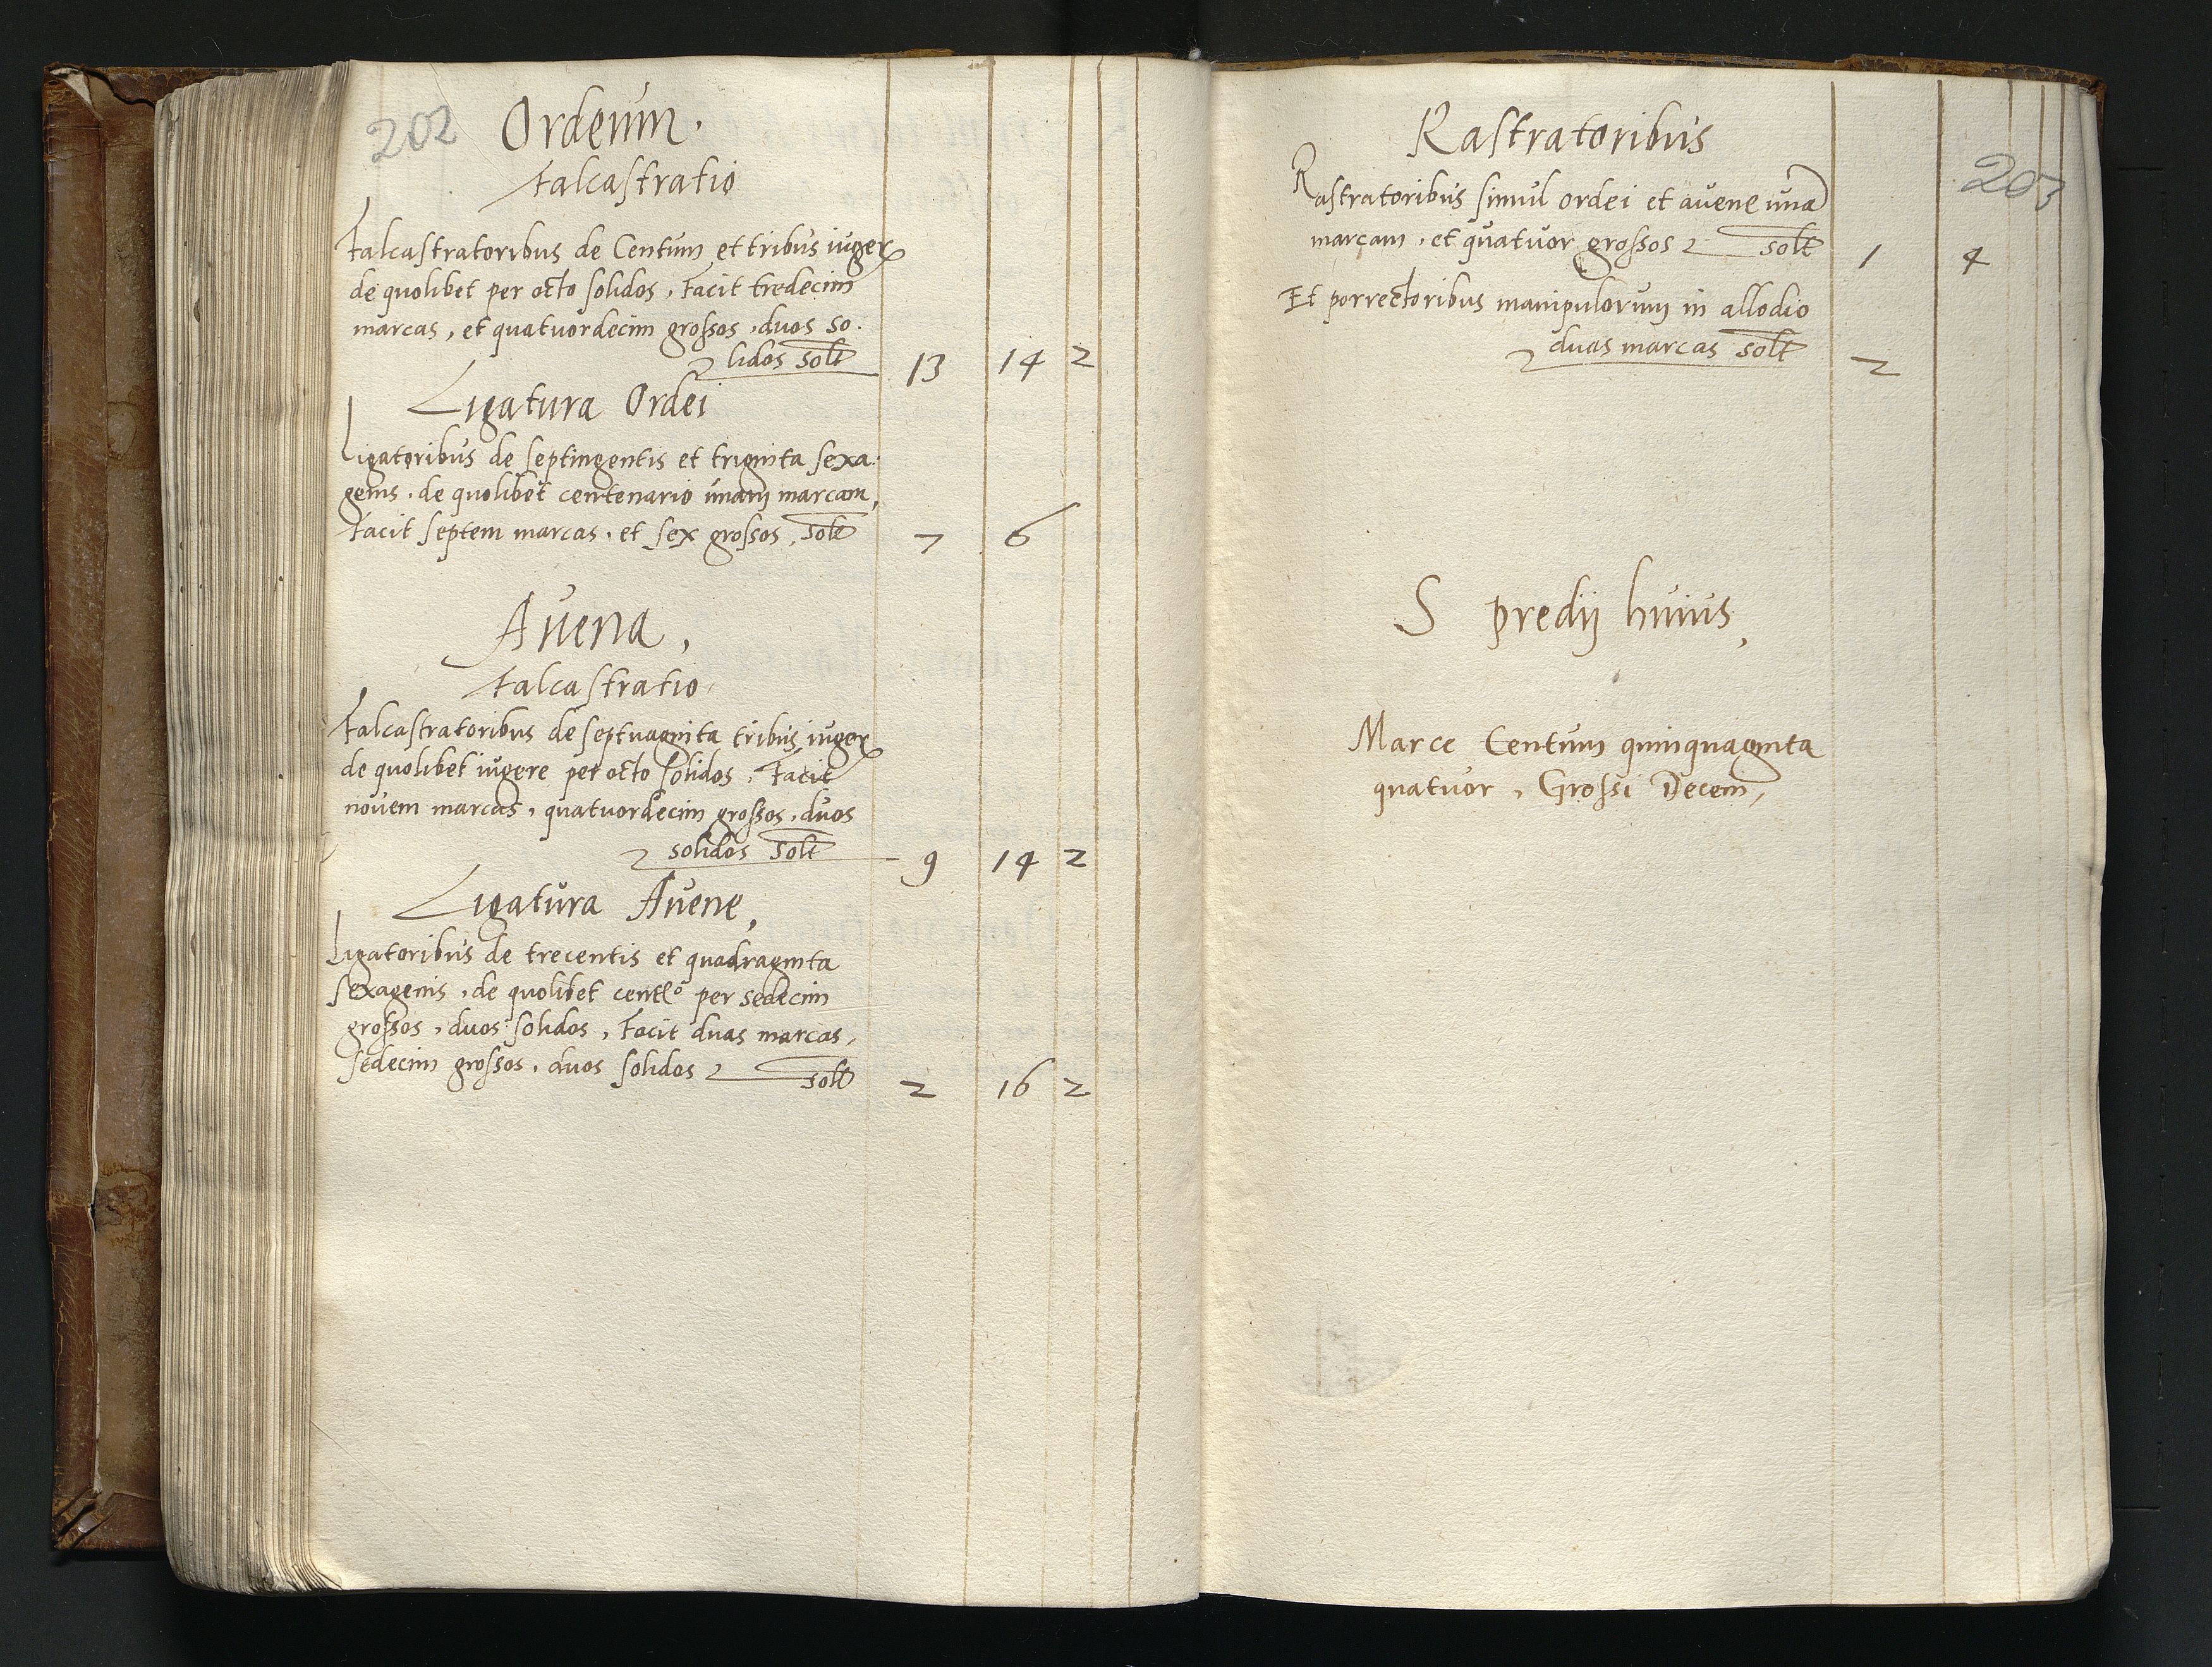 202
Ordeum.
falcastratio
falcastratoribus de Centum et tribus iuger
de quolibet per octo solidos, Facit tredecim
marcas, et quatuordecim grossos, duos so.
lidos solt 13 14 2
Ligatura Ordei
Ligatoribus de septingentis et triginta sexa.
genis, de quolibet centenario unam marcam,
facit septem marcas, et sex grossos, solt 7 6
Avena,
falcastratio
falcastratoribus de septuaginta tribus iuger
de quolibet iugere per octo solidos, Facit
novem marcas, quatuordecim grossos, duos
solidos solt 9 14 2
Ligatura Avene,
Ligatoribus de trecentis et quadraginta
sexagenis, de quolibet centº per sedecim
grossos, duos solidos, facit duas marcas,
sedecim grossos, duos solidos solt 2 16 2
203
Rastratoribus
Rastratoribus simul ordei et avene una
marcam, et quatuor grossos solt 1 4
Et porrectoribus manipulorum in allodio
duas marcas solt 2
S predij huius,
Marce Centum quinquaginta
quatuor, Grossi Decem,